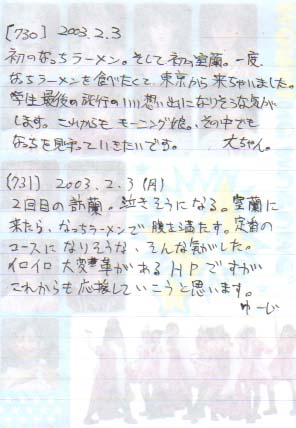 [730] 2003.2.3
初のなっちラーメン。そして初の室蘭。一度、
なっちラーメンを食べたくて、東京から来ちゃいました。
学生最後の旅行のいい想い出になりそうな気が
します。これからも モーニング娘。、その中でも
なっちを見守っていきたいです。 大ちゃん。
[731] 2003.2.3(月)
2回目の訪蘭。泣きそうになる。室蘭に
来たら、なっちラーメンで腹を満たす。定番の
コースになりそうな、そんな気がした。
イロイロ大変革があるHPですが
これからも応援していこうと思います。
ゆーじ